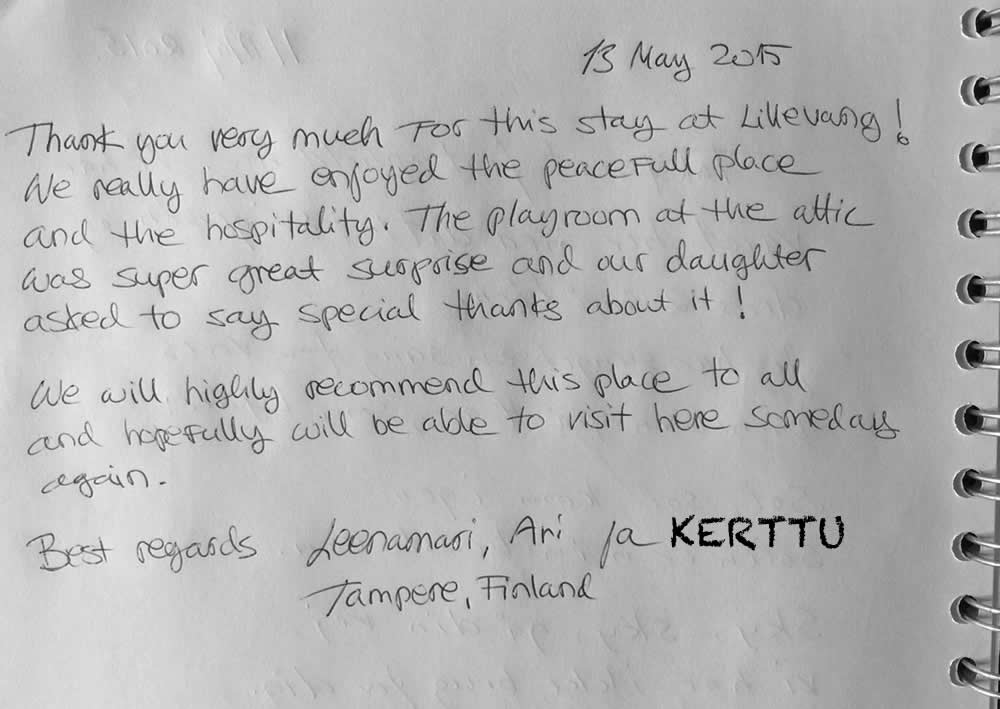 13 May 2015
Thank you very much for this stay at Lillevang!
We really have enjoyed the peacefull place
and the hospitality. The playroom at the attic
was super great surprise and our daughter
asked to say special thanks about it!
We will highly recommend this place to all
and hopefully will be able to visit here someday
again.
Best regards Leenamari, Ari ja KERTTU
Tampere, Finland